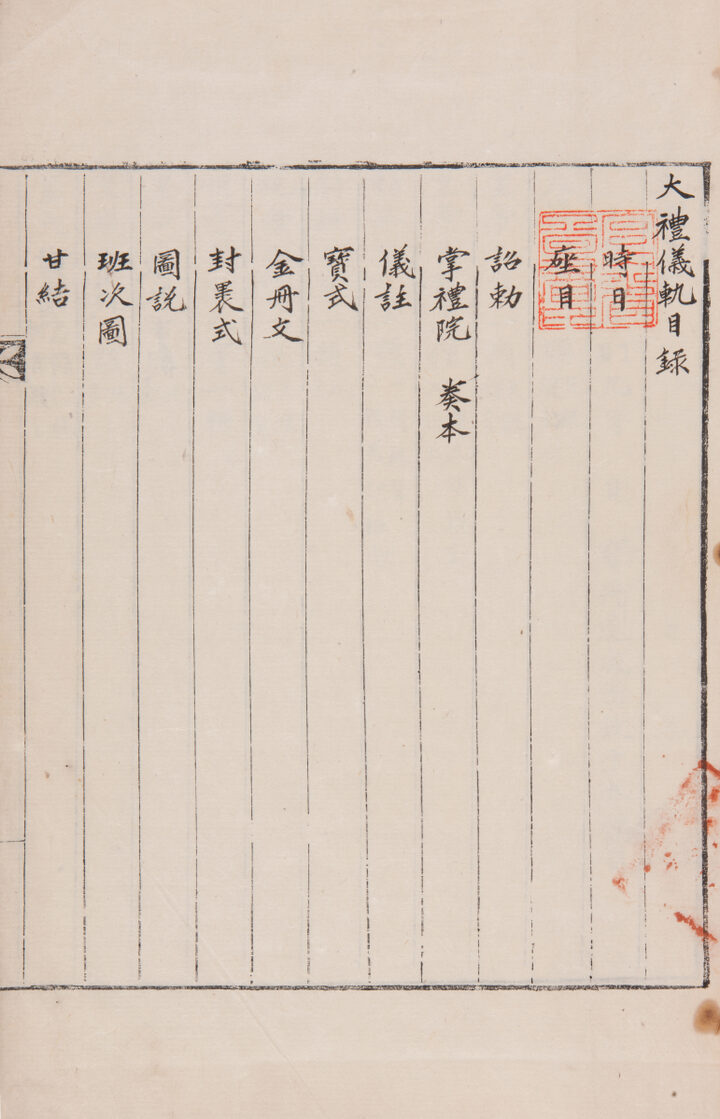 大禮儀軌目錄
時日
座目
詔勅
掌禮院 奏本
儀註
寶式
金冊文
封裹式
圖說
班次圖
甘結